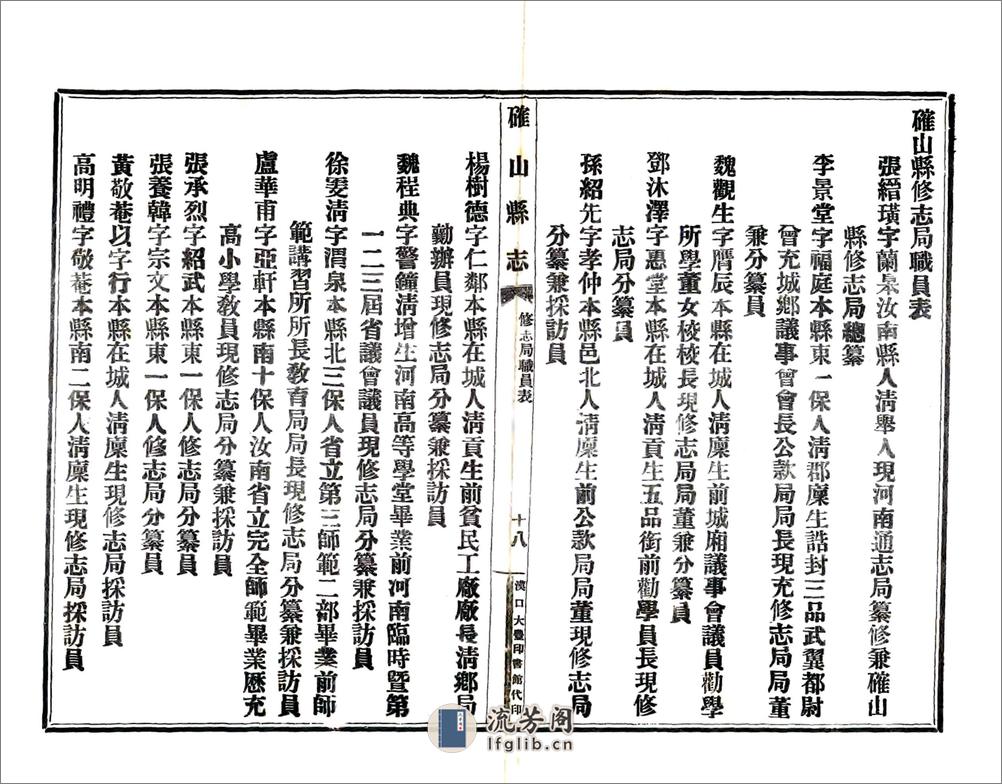 確山縣修志局職員表
張縉璜字蘭臬汝南縣人淸舉人現河南通志局纂修兼確山
縣修志局總纂
李景堂字福庭本縣東一保人淸郡廩生誥封三品武翼都尉
曾充城鄉議事會會長公款局局長現充修志局局董
兼分纂員
魏觀生字膺辰本縣在城人淸廩生前城廂議事會議員勸學
所學董女校校長現修志局局董兼分纂員
鄧沐澤字惠堂本縣在城人淸貢生五品銜前勸學員長現修
志局分纂員
孫紹先字孝仲本縣邑北人淸廩生前公款局局董現修志局
分纂兼採訪員
確山縣志
修志局職員表
十八
漢口大豐印書館代印
楊樹德字仁鄰本縣在城人淸貢生前貧民工廠廠長淸鄉局
勷辦員現修志局分纂兼採訪員
魏程典字警鐘淸增生河南高等學堂畢業前河南臨時暨第
一二三屆省議會議員現修志局分纂兼採訪員
徐雯淸字渭泉本縣北三保人省立第三師範二部畢業前師
範講習所所長敎育局局長現修志局分纂兼採訪員
盧華甫字亞軒本縣南十保人汝南省立完全師範畢業歷充
高小學敎員現修志局分纂兼採訪員
張承烈字紹武本縣東一保人修志局分纂員
張養韓字宗文本縣東一保人修志局分纂員
黃敬菴以字行本縣在城人淸廩生現修志局採訪員
高明禮字敬菴本縣南二保人淸廩生現修志局採訪員
流芳阁
lfglib.cn